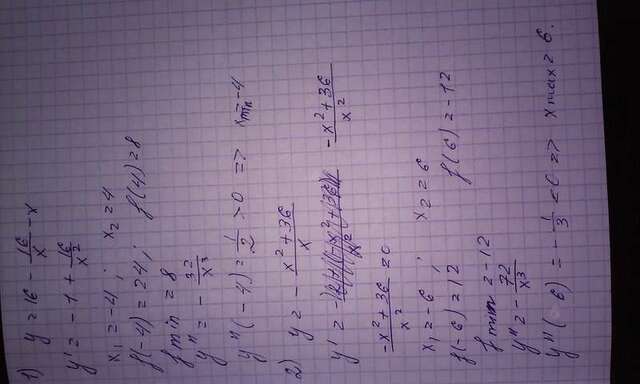 1) y = 16 - 16/x - x
y' = -1 + 16/x²
x₁ = -4 ; x₂ = 4
f(-4) = 24 ; f(4) = 8
f min = 8
y'' = - 32/x³
y''(-4) = 1/2 > 0 => x min = -4
2) y = - x² + 36 / x
y' = -x² + 36 / x²
-x² + 36 / x² = 0
x₁ = -6 ; x₂ = 6
f(-6) = 12 f(6) = -12
f min = -12
y'' = - 72/x³
y''(6) = - 1/3 < 0 => x max = 6.